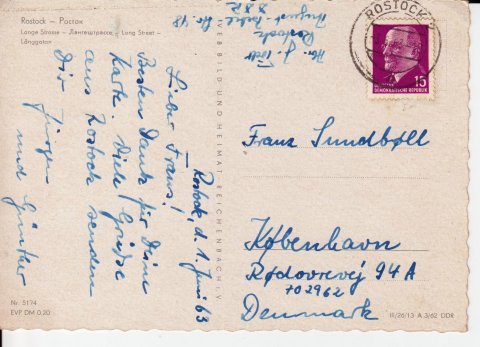 Rostock – Росток
Lange Strasse – Лангештрассе – Lang Street –
Långgatan
Rostock, d. 1. Juni 63
Lieber Frans!
Besten Dank für Deine
Karte. Viele Grüße
aus Rostock senden
Dir Jürgen
und Günther
Nr. 5174
EVP DM 0,20
VEB BILD UND HEIMAT REICHENBACH I. V.
Rostock
August Bebel
Str. 48
ROSTOCK
15
DEMOKRATISCHE REPUBLIK
Franz Sundbøll
København
Rødovrevej 94A
702962
Denmark
III/26/13 A 3/62 DDR